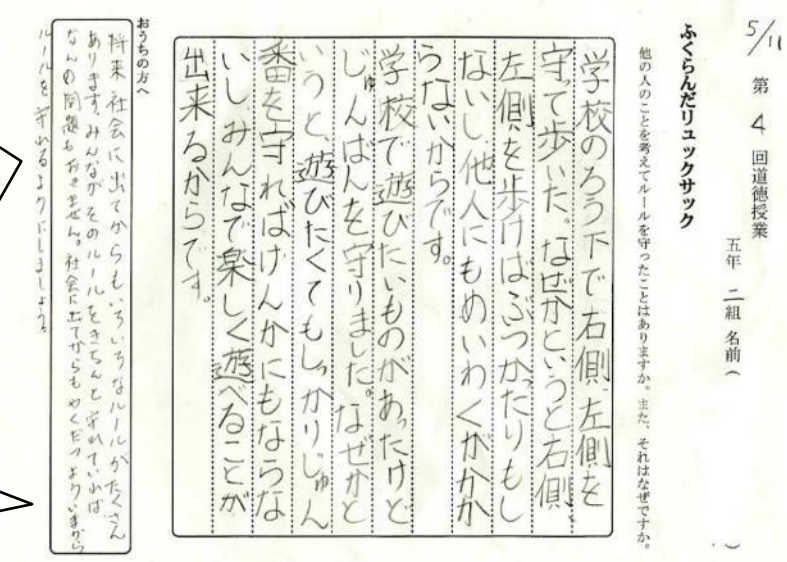 5/11
第 4 回道徳授業
五年 二組 名前( )
ふくらんだリュックサック
他の人のことを考えてルールを守ったことはありますか。また、それはなぜですか。
学校のろう下で右側、左側を
守って歩いた。なぜかというと右側、
左側を歩けばぶつかったりもし
ないし、他人にもめいわくがかか
らないからです。
学校で遊びたいものがあったけど
じゅんばんを守りました。なぜかと
いうと、遊びたくてもしっかりじゅん
番を守ればけんかにもならな
いしみんなで楽しく遊べることが
出来るからです。
おうちの方へ
将来社会に出てからもいろいろなルールがたくさん
あります。みんながそのルールをきちんと守れていれば
なんの問題もおきません。社会に出てからもやくだつよういまから
ルールを守れるようにしましょう。